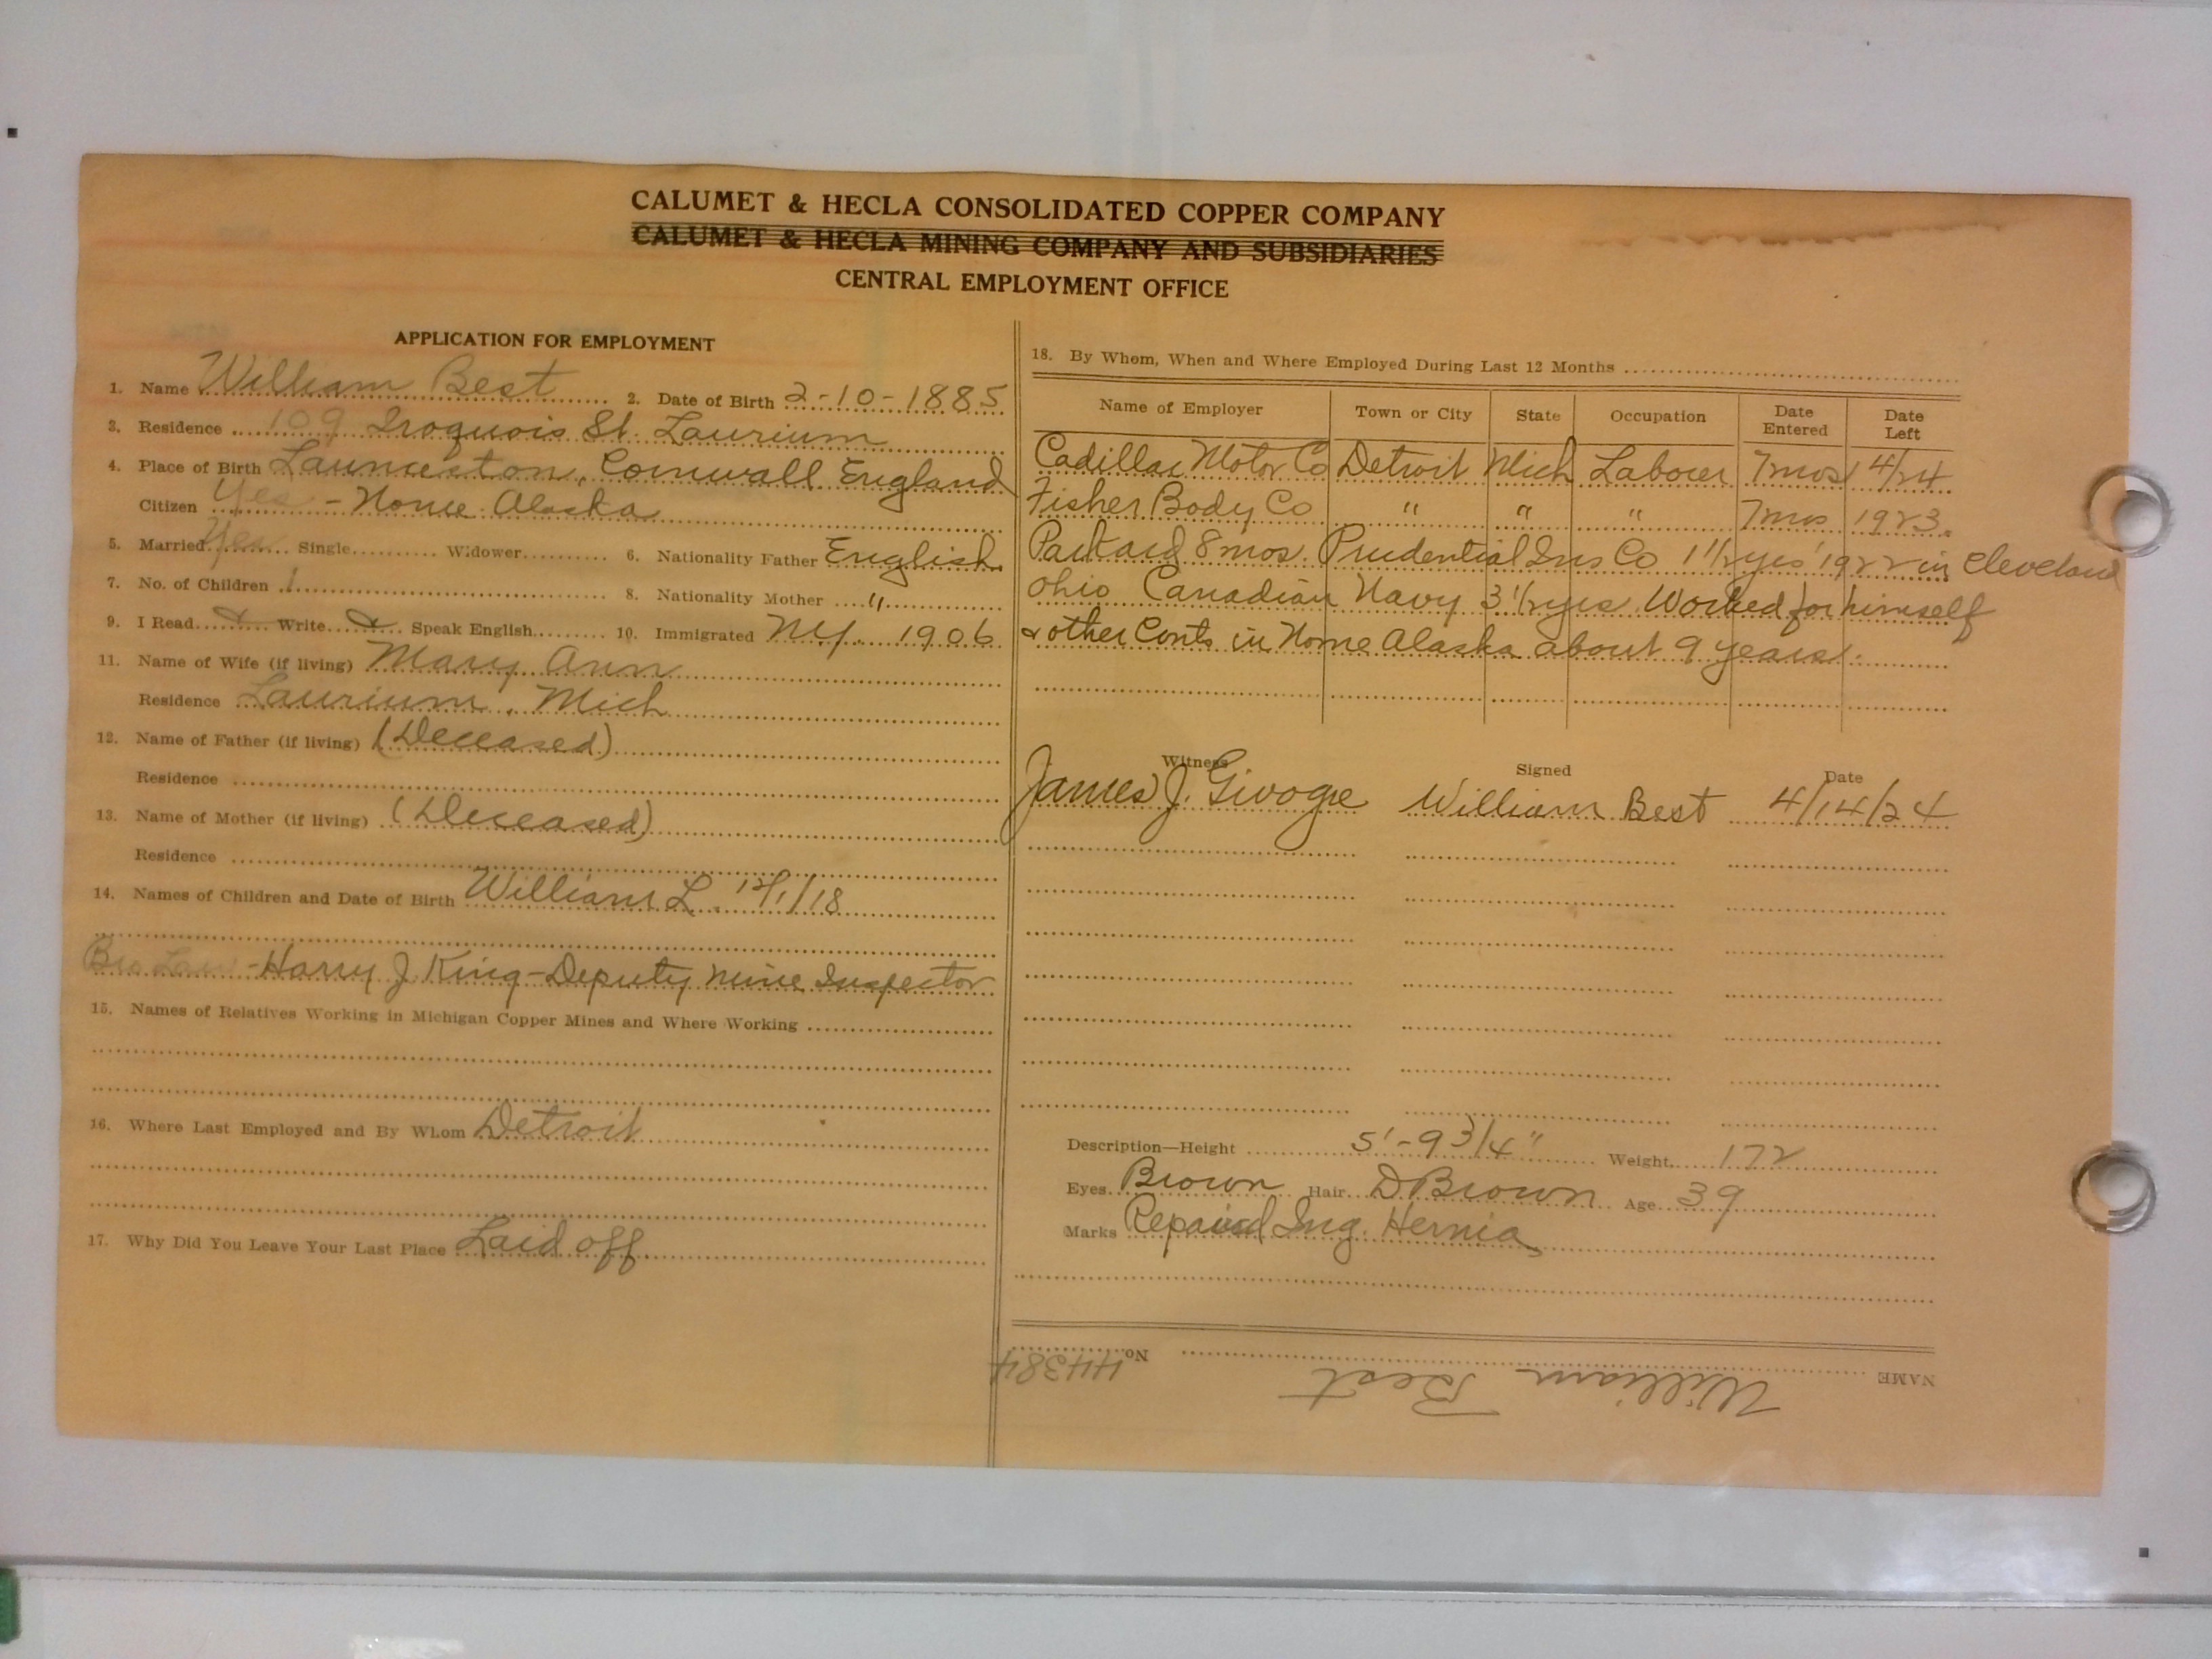 CALUMET & HECLA CONSOLIDATED COPPER COMPANY
CALUMET & HECLA MINING COMPANY AND SUBSIDIARIES
CENTRAL EMPLOYMENT OFFICE
APPLICATION FOR EMPLOYMENT
1. Name William Best 2. Date of Birth 2-10-1885
3. Residence 109 Iroquois St. Laurium
4. Place of Birth Launceston, Cornwall England
Citizen Yes - Nome Alaska
5. Married Yes Single Widower 6. Nationality Father English
7. No. of Children 1 8. Nationality Mother "
9. I Read x Write x Speak English 10. Immigrated NY. 1906
11. Name of Wife (if living) Mary Ann
Residence Laurium, Mich
12. Name of Father (if living) (Deceased)
Residence
13. Name of Mother (if living) (Deceased)
Residence
14. Names of Children and Date of Birth William L. 12/1/18
Bro Law - Harry J King - Deputy Mine Inspector
15. Names of Relatives Working in Michigan Copper Mines and Where Working
16. Where Last Employed and By Whom Detroit
17. Why Did You Leave Your Last Place Laid off
18. By Whom, When and Where Employed During Last 12 Months
Name of Employer Town or City State Occupation Date Entered Date Left
Cadillac Motor Co Detroit Mich Laborer 7mos 4/24
Fisher Body Co " " " 7mos 1923.
Packard 8 mos. Prudential Ins Co 1 1/2 yrs 1922 in Cleveland
Ohio Canadian Navy 3 1/2 yrs. Worked for himself
& other Conts in Nome Alaska about 9 years.
Witness Signed Date
James J. William Best 4/14/24
Description—Height 5'-9 3/4" Weight 172
Eyes Brown Hair D Brown Age 39
Marks Repaired Ing. Hernia
NAME William Best No. 44384